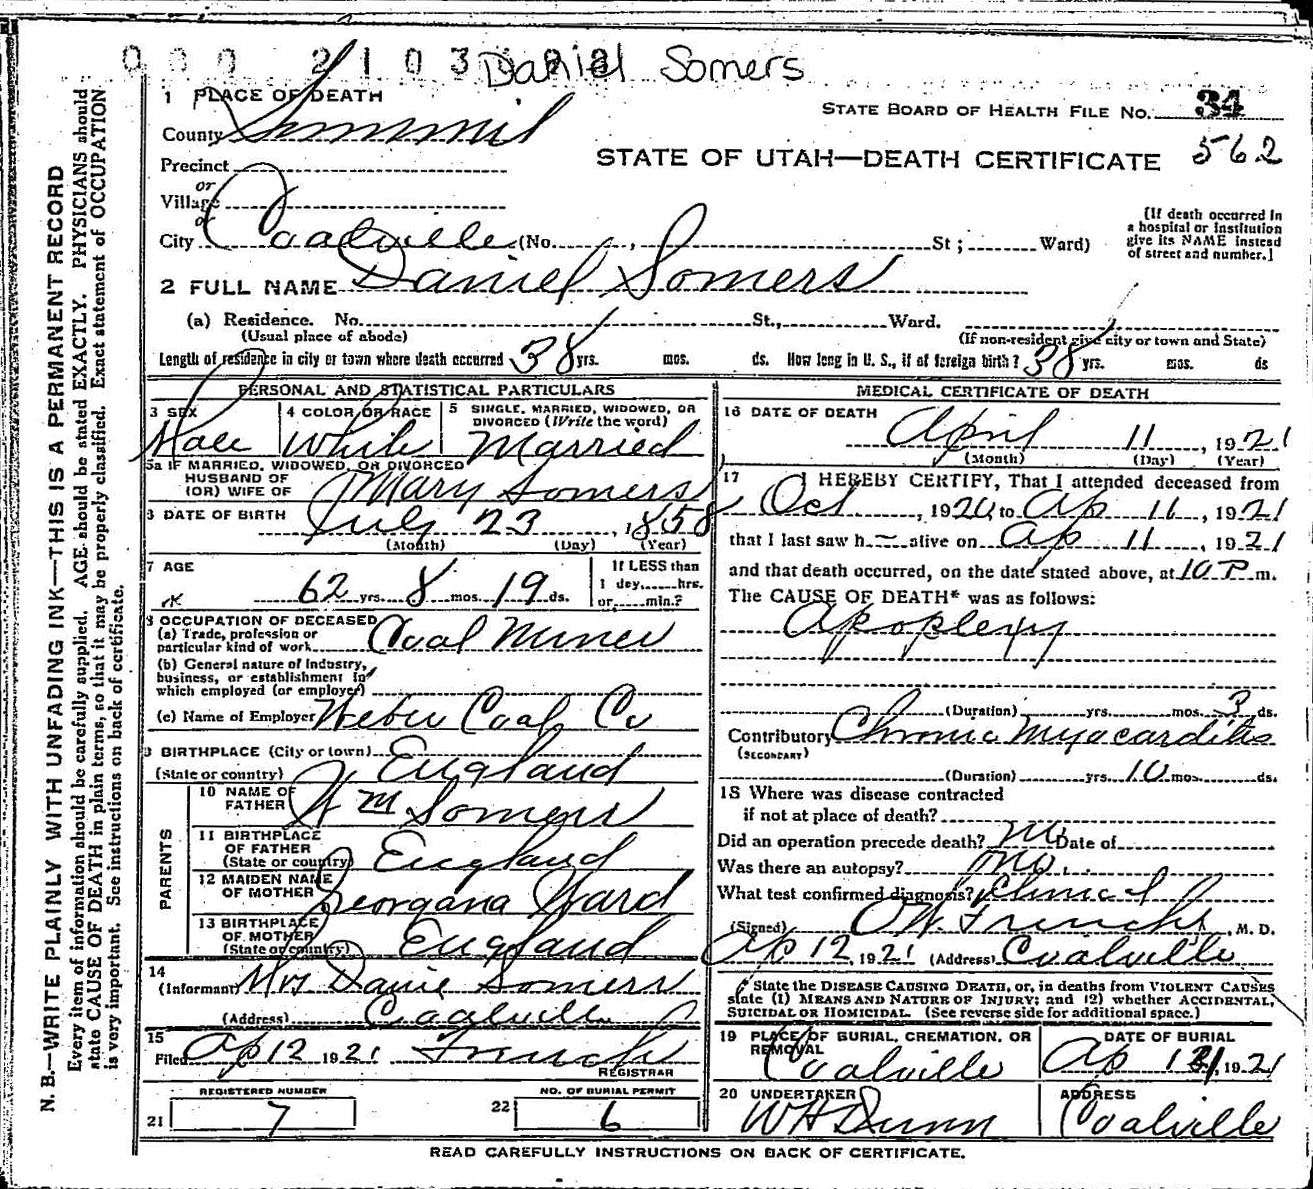 0 0 0 2 1 0 3
Daniel Somers
1 PLACE OF DEATH
STATE BOARD OF HEALTH FILE NO. 34
County Summit
STATE OF UTAH—DEATH CERTIFICATE 562
Precinct
or
Village
or
City Coalville (No. , St; Ward)
[If death occurred in
a hospital or institution
give its NAME instead
of street and number.]
2 FULL NAME Daniel Somers
(a) Residence. No. St., Ward.
(Usual place of abode) (If non-resident give city or town and State)
Length of residence in city or town where death occurred 38 yrs. mos. ds. How long in U. S., if of foreign birth? 38 yrs. mos. ds
PERSONAL AND STATISTICAL PARTICULARS
3 SEX Male
4 COLOR OR RACE White
5 SINGLE, MARRIED, WIDOWED, OR
DIVORCED (Write the word)
Married
5a IF MARRIED, WIDOWED, OR DIVORCED
HUSBAND OF
(OR) WIFE OF Mary Somers
DATE OF BIRTH July 23, 1858
(Month) (Day) (Year)
7 AGE
62 yrs. 8 mos. 19 ds.
If LESS than
1 day, hrs.
or min.?
8 OCCUPATION OF DECEASED
(a) Trade, profession or
particular kind of work Coal Miner
(b) General nature of Industry,
business, or establishment in
which employed (or employer)
(c) Name of Employer Weber Coal Co
9 BIRTHPLACE (City or town)
(State or country) England
PARENTS
10 NAME OF
FATHER Wm Somers
11 BIRTHPLACE
OF FATHER
(State or country) England
12 MAIDEN NAME
OF MOTHER Georgana Ward
13 BIRTHPLACE
OF MOTHER
(State or country) England
14
(Informant) Mrs Daniel Somers
(Address) Coalville
15
Filed Ap 12 1921 French
REGISTRAR
REGISTERED NUMBER
21 7
NO. OF BURIAL PERMIT
22 6
MEDICAL CERTIFICATE OF DEATH
16 DATE OF DEATH
April 11, 1921
(Month) (Day) (Year)
17 I HEREBY CERTIFY, That I attended deceased from
Oct , 1920, to Ap 11, 1921
that I last saw h alive on Ap 11, 1921
and that death occurred, on the date stated above, at 10 P. m.
The CAUSE OF DEATH* was as follows:
Apoplexy
(Duration) yrs. mos. 3 ds.
Contributory Chronic Myocarditis
(SECONDARY)
(Duration) yrs. 10 mos. ds.
18 Where was disease contracted
if not at place of death?
Did an operation precede death? no Date of
Was there an autopsy? no.
What test confirmed diagnosis? Clinical
(Signed) French, M. D.
Ap 12, 1921 (Address) Coalville
* State the DISEASE CAUSING DEATH, or, in deaths from VIOLENT CAUSES
state (1) MEANS AND NATURE OF INJURY; and (2) whether ACCIDENTAL,
SUICIDAL OR HOMICIDAL. (See reverse side for additional space.)
19 PLACE OF BURIAL, CREMATION, OR
REMOVAL
Coalville
DATE OF BURIAL
Ap 1 , 1921
20 UNDERTAKER
W H Dunn
ADDRESS
Coalville
READ CAREFULLY INSTRUCTIONS ON BACK OF CERTIFICATE.
N. B.—WRITE PLAINLY WITH UNFADING INK—THIS IS A PERMANENT RECORD
Every item of information should be carefully supplied. AGE should be stated EXACTLY. PHYSICIANS should
state CAUSE OF DEATH in plain terms, so that it may be properly classified. Exact statement of OCCUPATION
is very important. See instructions on back of certificate.